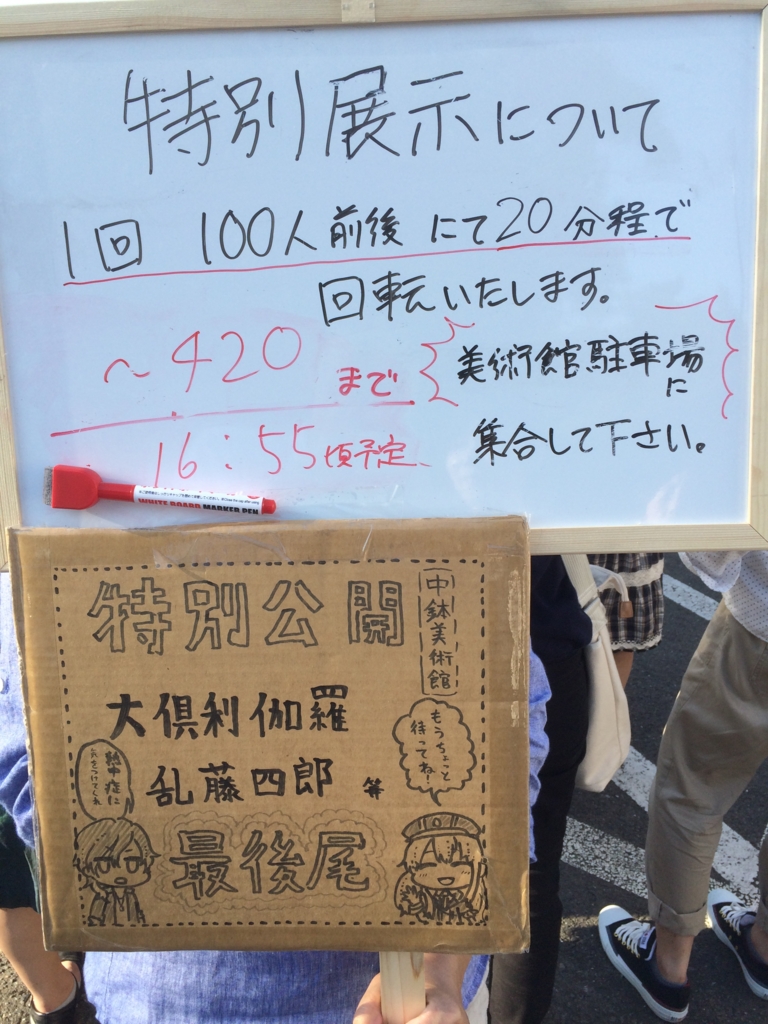 特別展示について
1回 100人前後 にて20分程で
回転いたします。
～420 まで
16:55頃予定、
美術館駐車場
に
集合して下さい。
WHITE BOARD MARKER PEN
特別公開
中鉢美術館
大倶利伽羅
乱藤四郎 等
もうちょっと
待ってね!
熱中症に
気をつけてくれ
最後尾